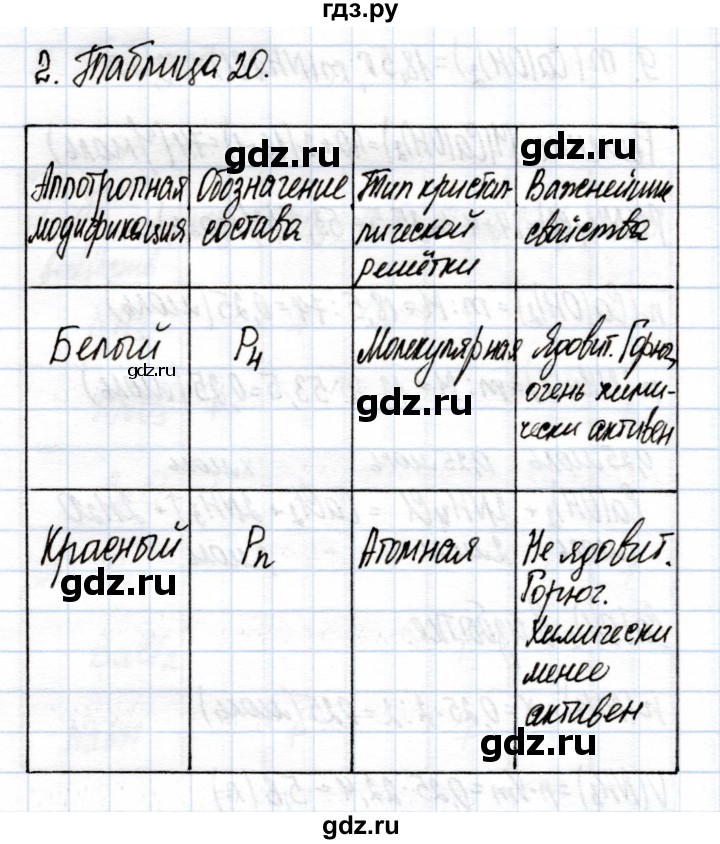 гдз.ру
2. Таблица 20.
Аллотропная модификация
Обозначение состава
Тип кристаллической решётки
Важнейшие свойства
gdz.ru
gdz.ru
Белый
P4
Молекулярная
Ядовит. Горюч, очень химически активен
gdz.ru
gdz.ru
Красный
Pn
Атомная
Не ядовит. Горюч. Химически менее активен
gdz.ru
gdz.ru
gdz.ru